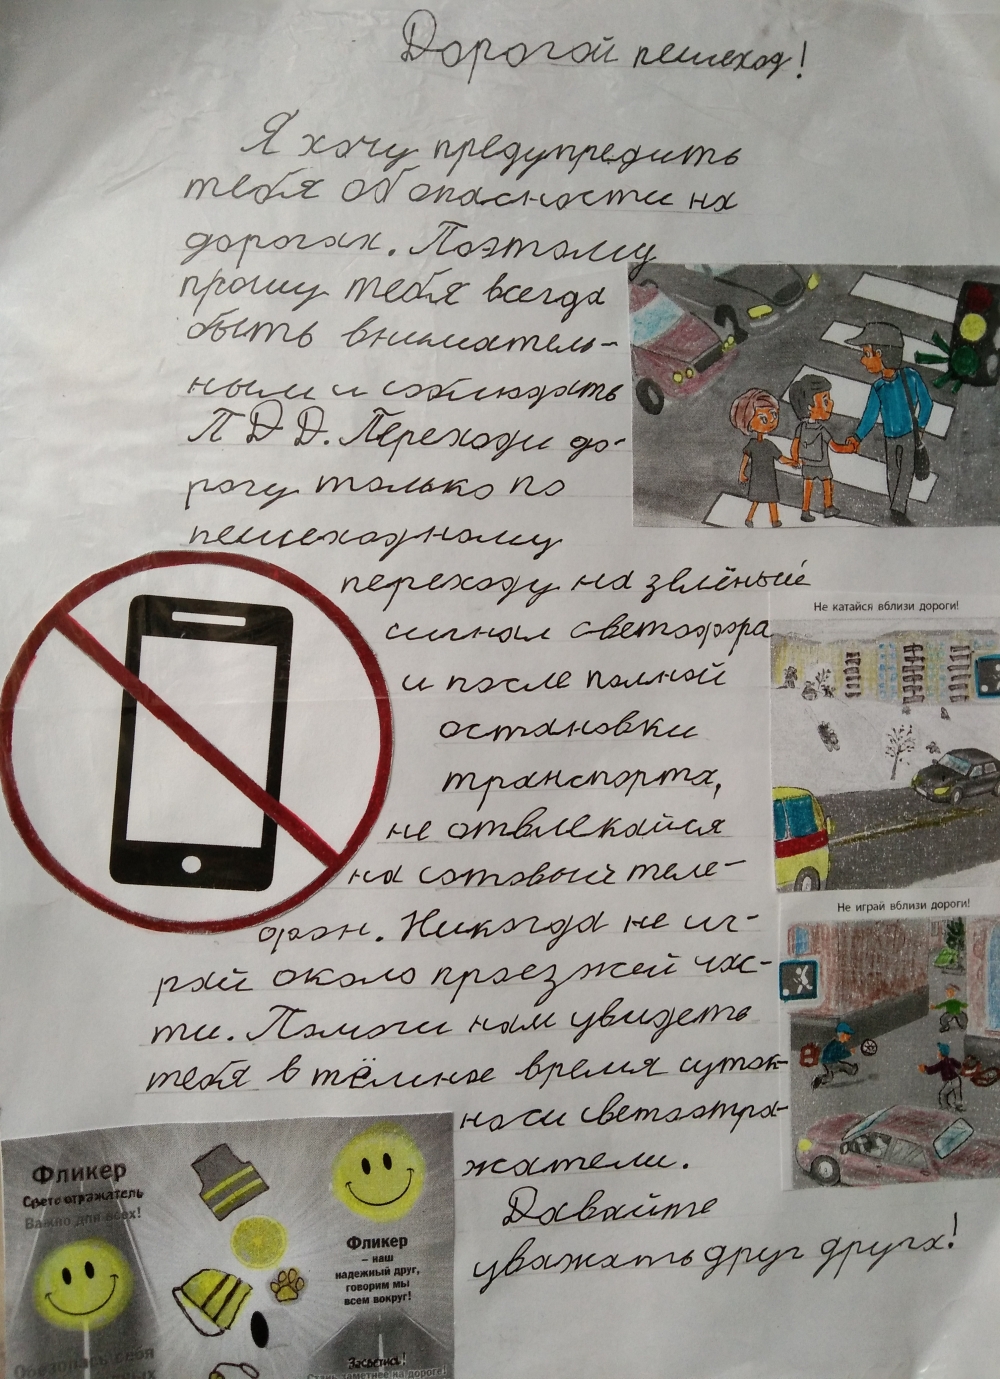 Дорогой пешеход!
Я хочу предупредить
тебя об опасности на
дорогах. Поэтому
прошу тебя всегда
быть вниматель-
ным и соблюдать
ПДД. Переходи до-
рогу только по
пешеходному
переходу на зелёный
сигнал светофора
и после полной
остановки
транспорта,
не отвлекайся
на сотовый теле-
фон. Никогда не иг-
рай около проезжей час-
ти. Помоги нам увидеть
тебя в тёмное время суток-
носи светоотра-
жатели.
Давайте
уважать друг друга!
Не катайся вблизи дороги!
Не играй вблизи дороги!
Фликер
Светоотражатель
Важно для всех!
Фликер
– наш
надежный друг,
говорим мы
всем вокруг!
Обезопась себя
Засветись!
Стань заметнее на дороге!